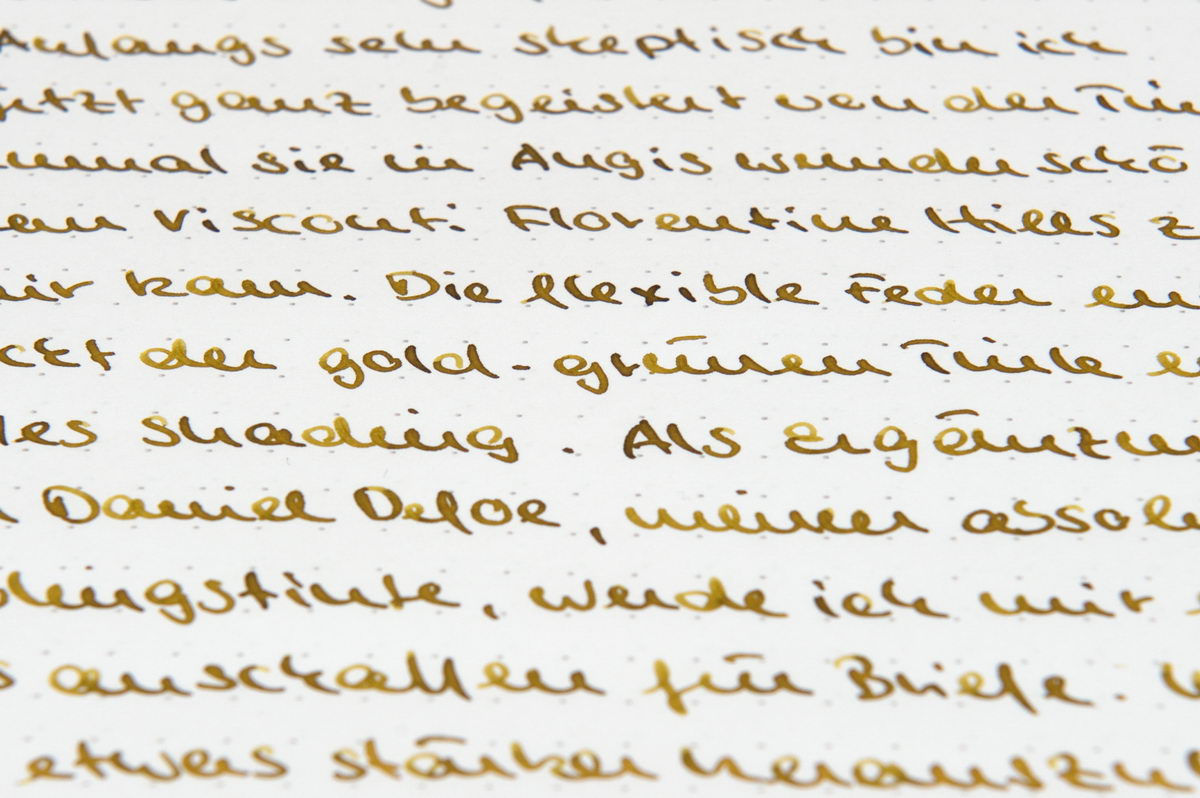 Anfangs sehr skeptisch bin ich
jetzt ganz begeistert von der Tin
nmal sie in Augis wunderschö
em Visconti Florentine Hills z
mir kam. Die flexible Feder en
ckt der gold-grünen Tinte e
les shading. Als Ergänzun
Daniel Defoe, meiner absol
blingstinte, werde ich mir
s anschaffen für Briefe.
etwas stärker herauszu